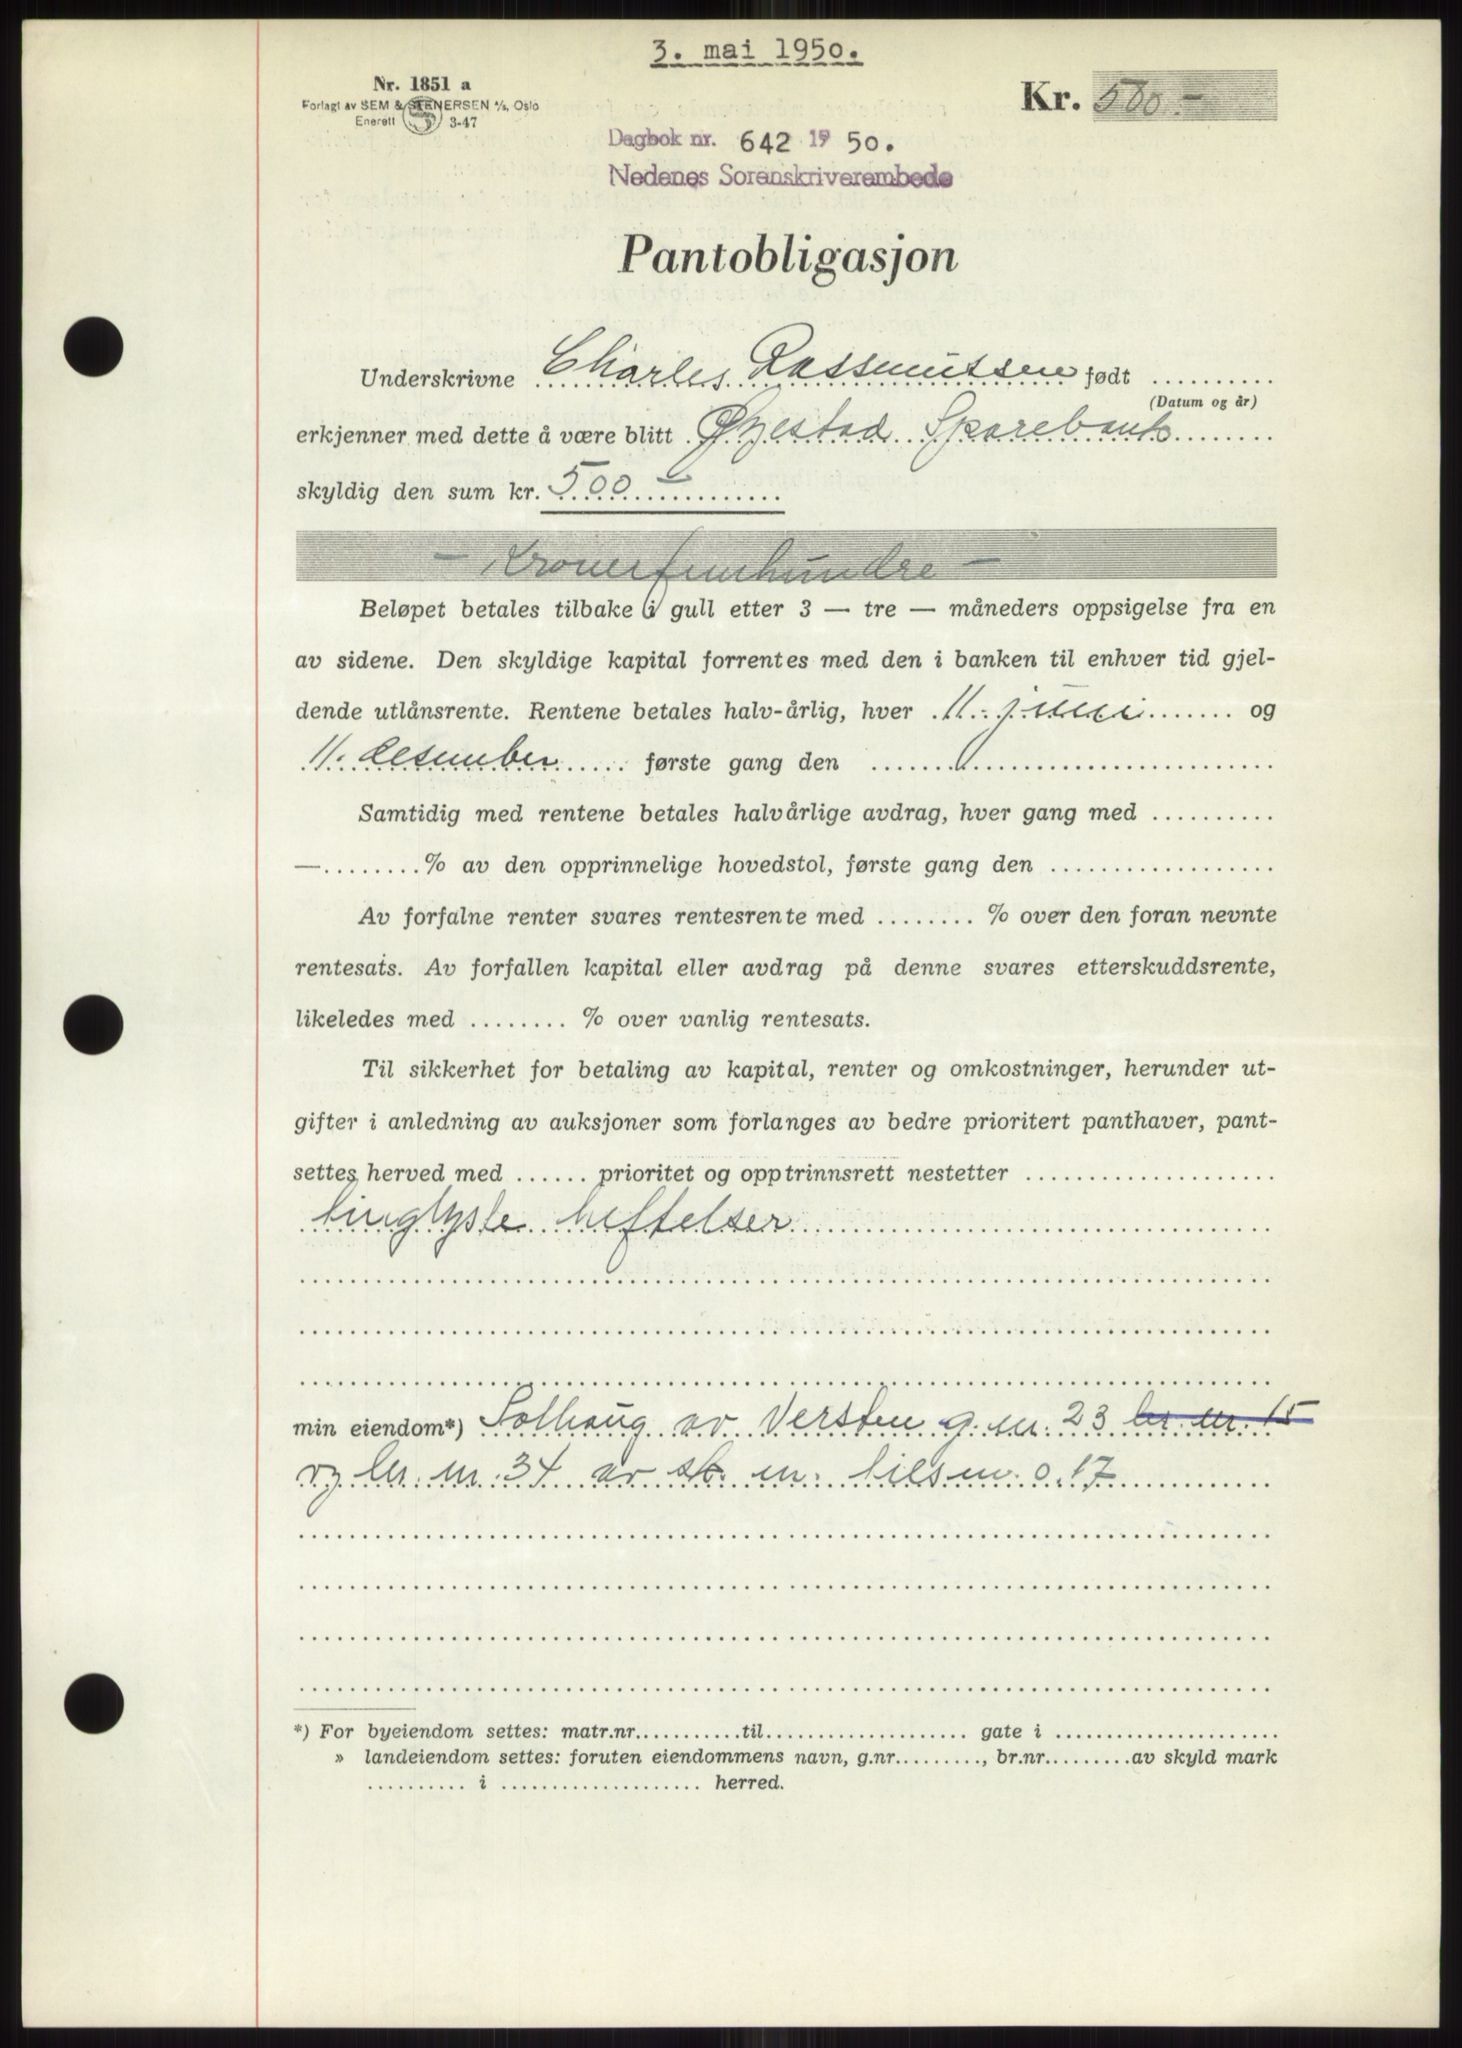 3. mai 1950.
Nr. 1851 a
Forlagt av SEM & STENERSEN A/S, Oslo
Enerett 3-47
Kr. 500.-
Dagbok nr. 642 1950.
Nedenes Sorenskriverembede
Pantobligasjon
Underskrivne Charles Rassmussen født ..........
(Datum og år)
erkjenner med dette å være blitt Øyestad Sparebank
skyldig den sum kr. 500 -
- Kroner femhundre -
Beløpet betales tilbake i gull etter 3 — tre — måneders oppsigelse fra en
av sidene. Den skyldige kapital forrentes med den i banken til enhver tid gjel-
dende utlånsrente. Rentene betales halv-årlig, hver 11. juni og
11. desember første gang den ..........
Samtidig med rentene betales halvårlige avdrag, hver gang med ..........
—........% av den opprinnelige hovedstol, første gang den ..........
Av forfalne renter svares rentesrente med ........ % over den foran nevnte
rentesats. Av forfallen kapital eller avdrag på denne svares etterskuddsrente,
likeledes med ........ % over vanlig rentesats.
Til sikkerhet for betaling av kapital, renter og omkostninger, herunder ut-
gifter i anledning av auksjoner som forlanges av bedre prioritert panthaver, pant-
settes herved med ...... prioritet og opptrinnsrett nestetter ..........
tinglyste heftelser
min eiendom*) Solhaug av Versten g. nr. 23 br. nr. 15
og br. nr. 34 av sk. m. tilsm. 0.17
*) For byeiendom settes: matr.nr...........til.................... gate i ......................
» landeiendom settes: foruten eiendommens navn, g.nr........., br.nr.........av skyld mark
.......... i .................... herred.